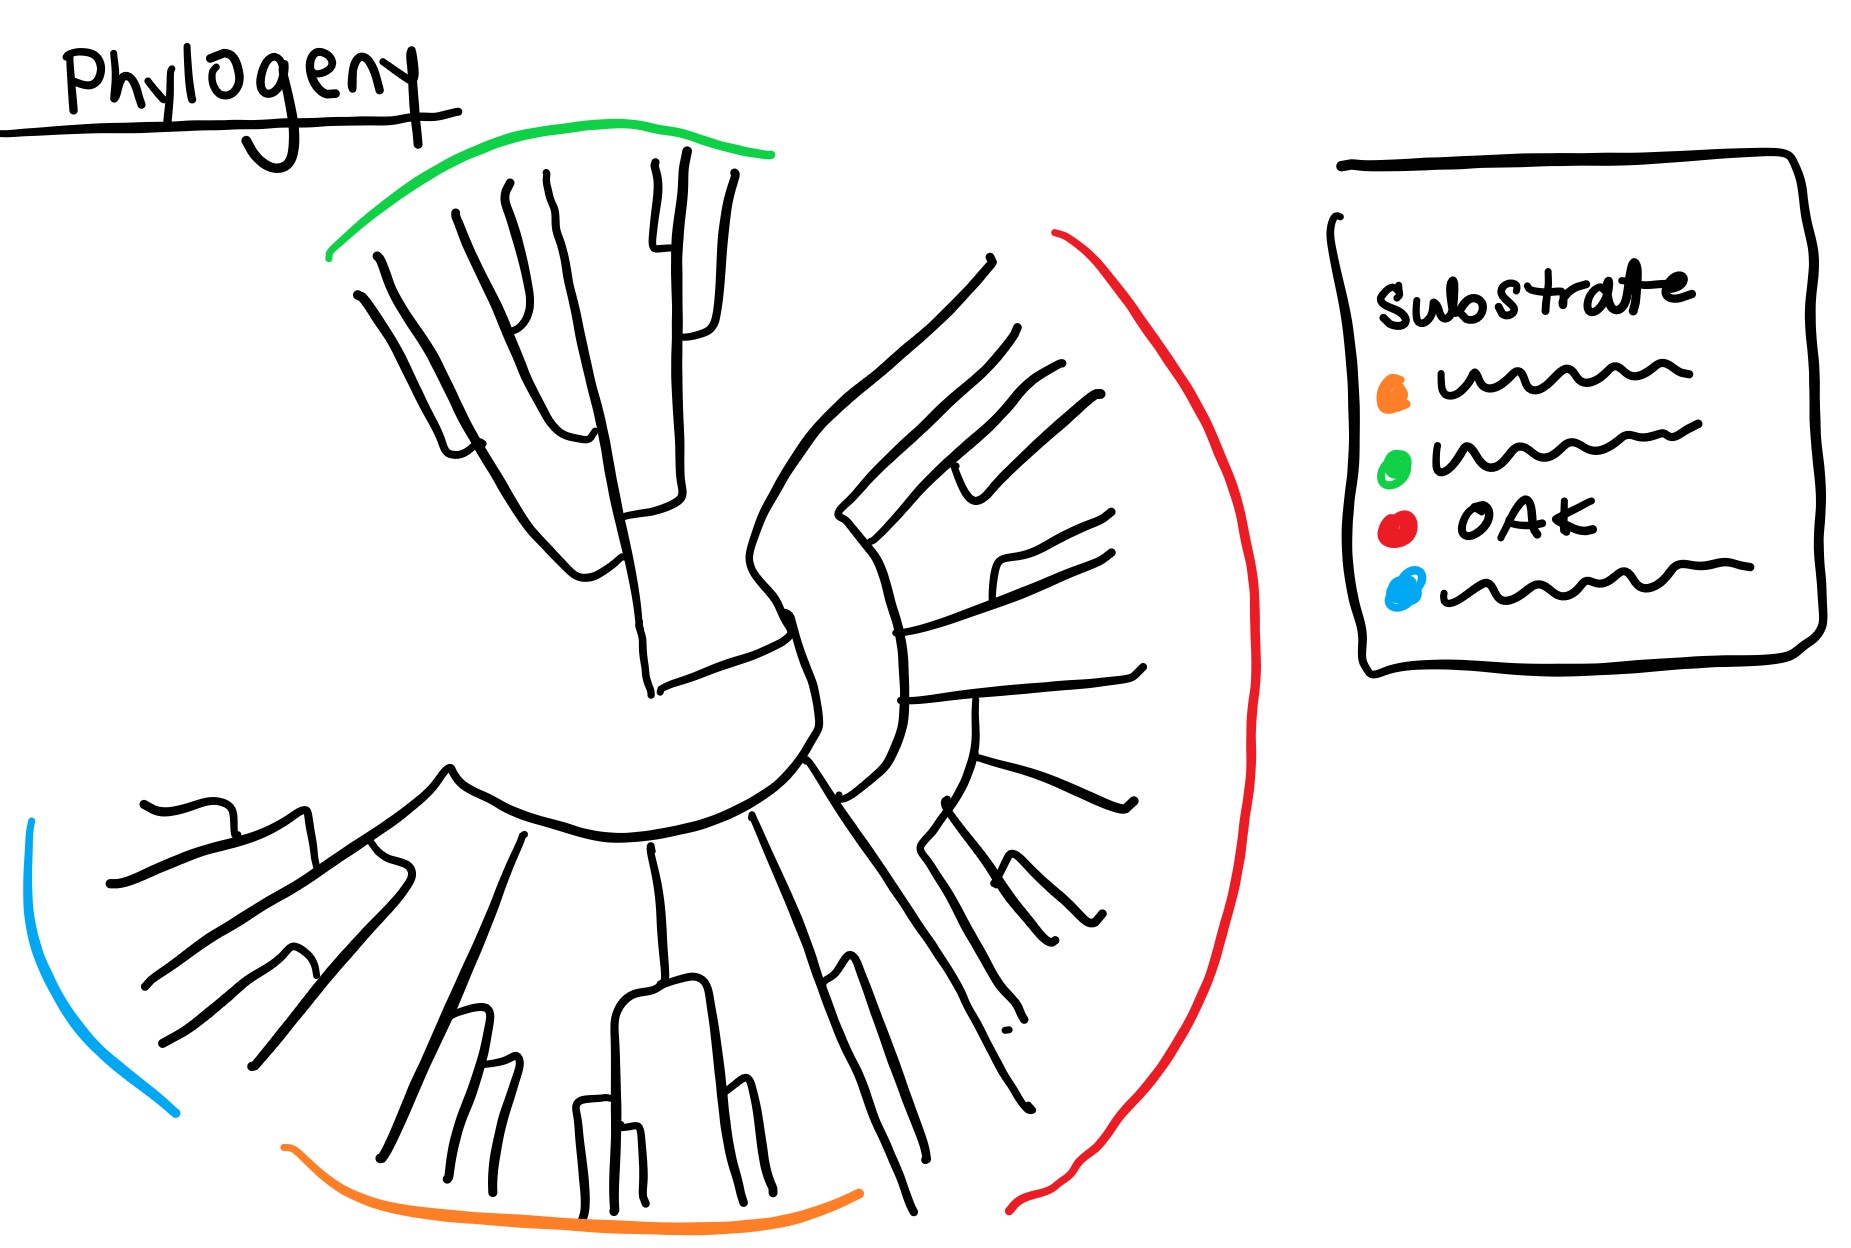 Phylogeny
Substrate
OAK